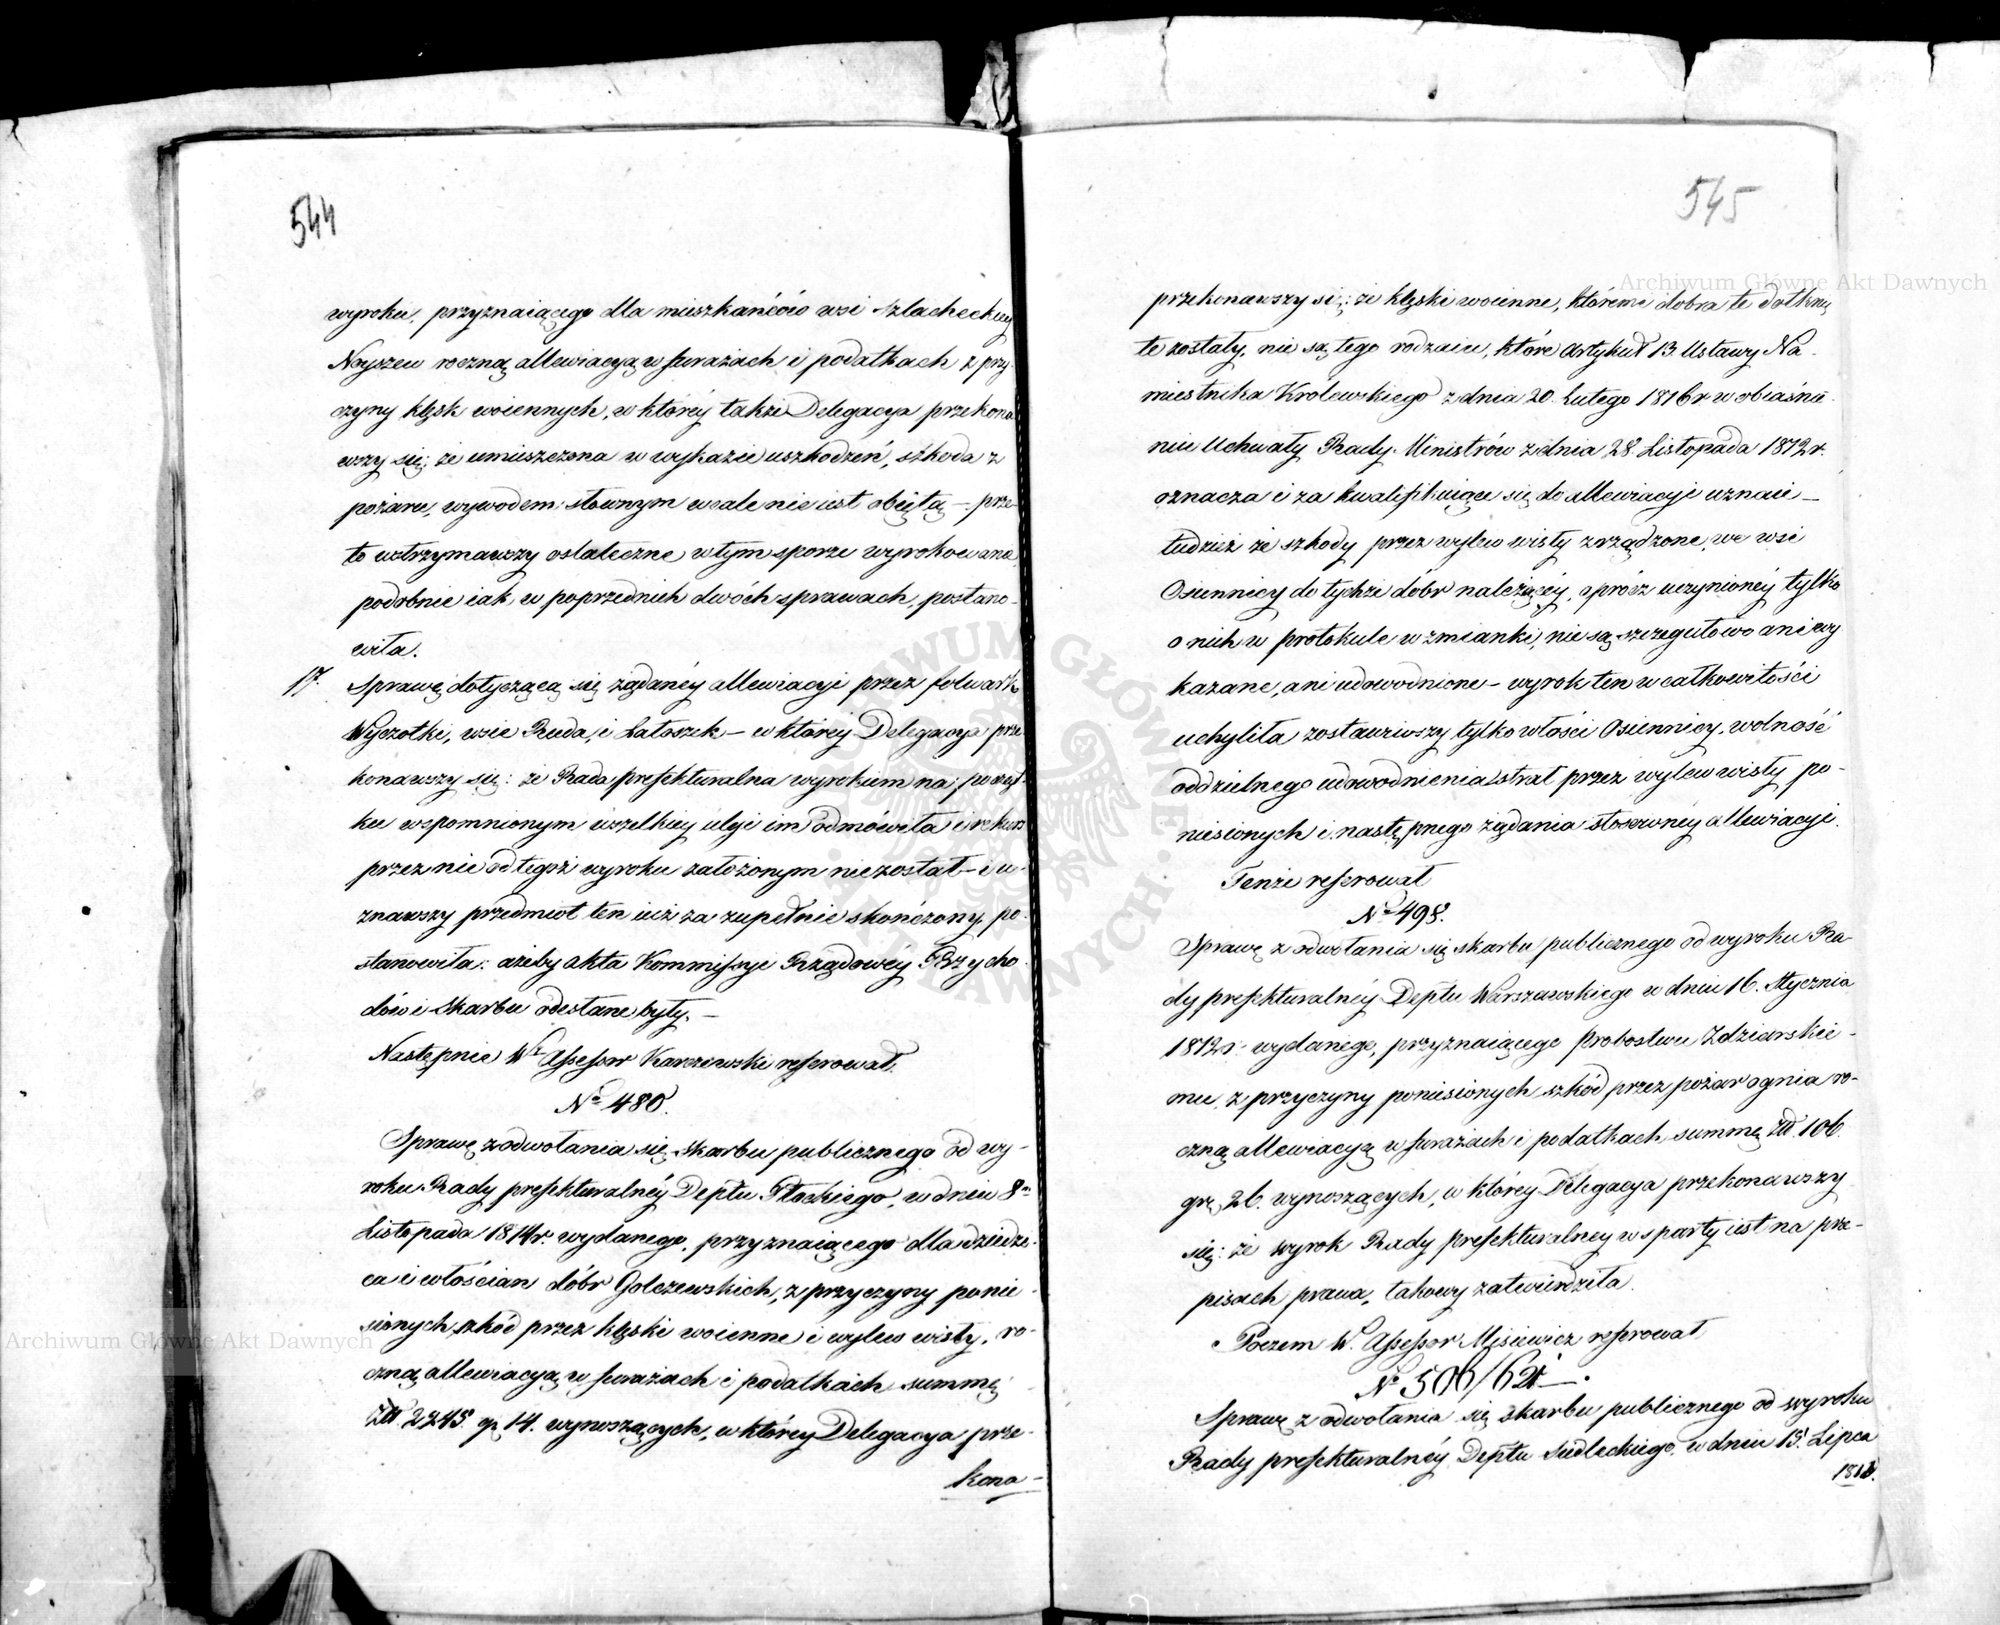 544
wyroku, przyznaiącego dla mieszkańców wsi Szlacheckiey
Noyszew roczną allewiacyą w furażach i podatkach z przy
czyny klęsk woiennych, w któréy także Delegacya przekona
wszy się; że umieszczona w wykazie uszkodzeń, szkoda z
pożaru, wywodem słownym wcale nie iest obiętą – prze-
to wstrzymawszy ostateczne w tym sporze wyrokowanie,
podobnie iak w poprzednich dwóch sprawach, postano-
wiła.
17. Sprawę dotyczącą się żądanéy allewiacyi przez folwark
Wyczołki, wsie Ruda, i Latoszek – w któréy Delegacya prze
konawszy się: że Rada prefekturalna wyrokiem na począt-
ku wspomnionym wszelkiéy ulgi im odmówiła i rekurs
przez nie od tegoż wyroku założonym nie został – i u-
znawszy przedmiot ten iuż za zupełnie skończony, po-
stanowiła: ażeby akta Kommissyi Rządowéy Przycho-
dów i Skarbu odesłane były. –
Następnie Wr Assessor Karczewski referował.
No 480.
Sprawę z odwołania się skarbu publicznego od wy-
roku Rady prefekturalnéy Deptu Płockiego, w dniu 8m
Listopada 1814r. wydanego, przyznaiącego dla dziedzi-
ca i włościan dóbr Golczewskich, z przyczyny ponie-
sionych szkód przez klęski woienne i wylew wisły, ro-
czną allewiacyą w furażach i podatkach summę
Złł 2245. gr 14. wynoszących, w któréy Delegacya prze-
kona-
545
przekonawszy się; że klęski woienne, któremi dobra te dotknię
te zostały, nie są tego rodzaiu, które Artykuł 13. Ustawy Na-
miestnika Królewskiego z dnia 20. Lutego 1816r w obiaśnie-
niu Uchwały Rady Ministrów z dnia 28. Listopada 1812r.
oznacza i za kwalifikuiące się do allewiacyi uznaie –
tudzież że szkody przez wylew wisły zrządzone, we wsi
Osiennicy do tychże dóbr należącéy, oprócz uczynionéy tylko
o nich w protokule wzmianki, nie są szczegułowo ani wy
kazane, ani udowodnione – wyrok ten w całkowitości
uchyliła zostawiwszy tylko włości Osiennicy, wolność
oddzielnego udowodnienia strat przez wylew wisły po-
niesionych i następnego żądania stosownéy allewiacyi.
Tenże referował
No 498.
Sprawę z odwołania się skarbu publicznego od wyroku Ra-
dy prefekturalnéy Deptu Warszawskiego w dniu 16. Stycznia
1812r. wydanego, przyznaiącego Probostwu Zdziarskie-
mu z przyczyny poniesionych szkód przez pożar ognia ro-
czną allewiacyą w furażach i podatkach, summę złł. 106.
gr. 26. wynoszących, w któréy Delegacya przekonawszy
się: że wyrok Rady prefekturalnéy wsparty iest na prze-
pisach prawa, takowy zatwierdziła.
Poczem W. Assessor Misiewicz referował
No 506/621 –.
Sprawę z odwołania się skarbu publicznego od wyroku
Rady prefekturalnéy Deptu Siedleckiego w dniu 15. Lipca
Archiwum Główne Akt Dawnych
Archiwum Główne Akt Dawnych
ARCHIWUM GŁÓWNE AKT DAWNYCH